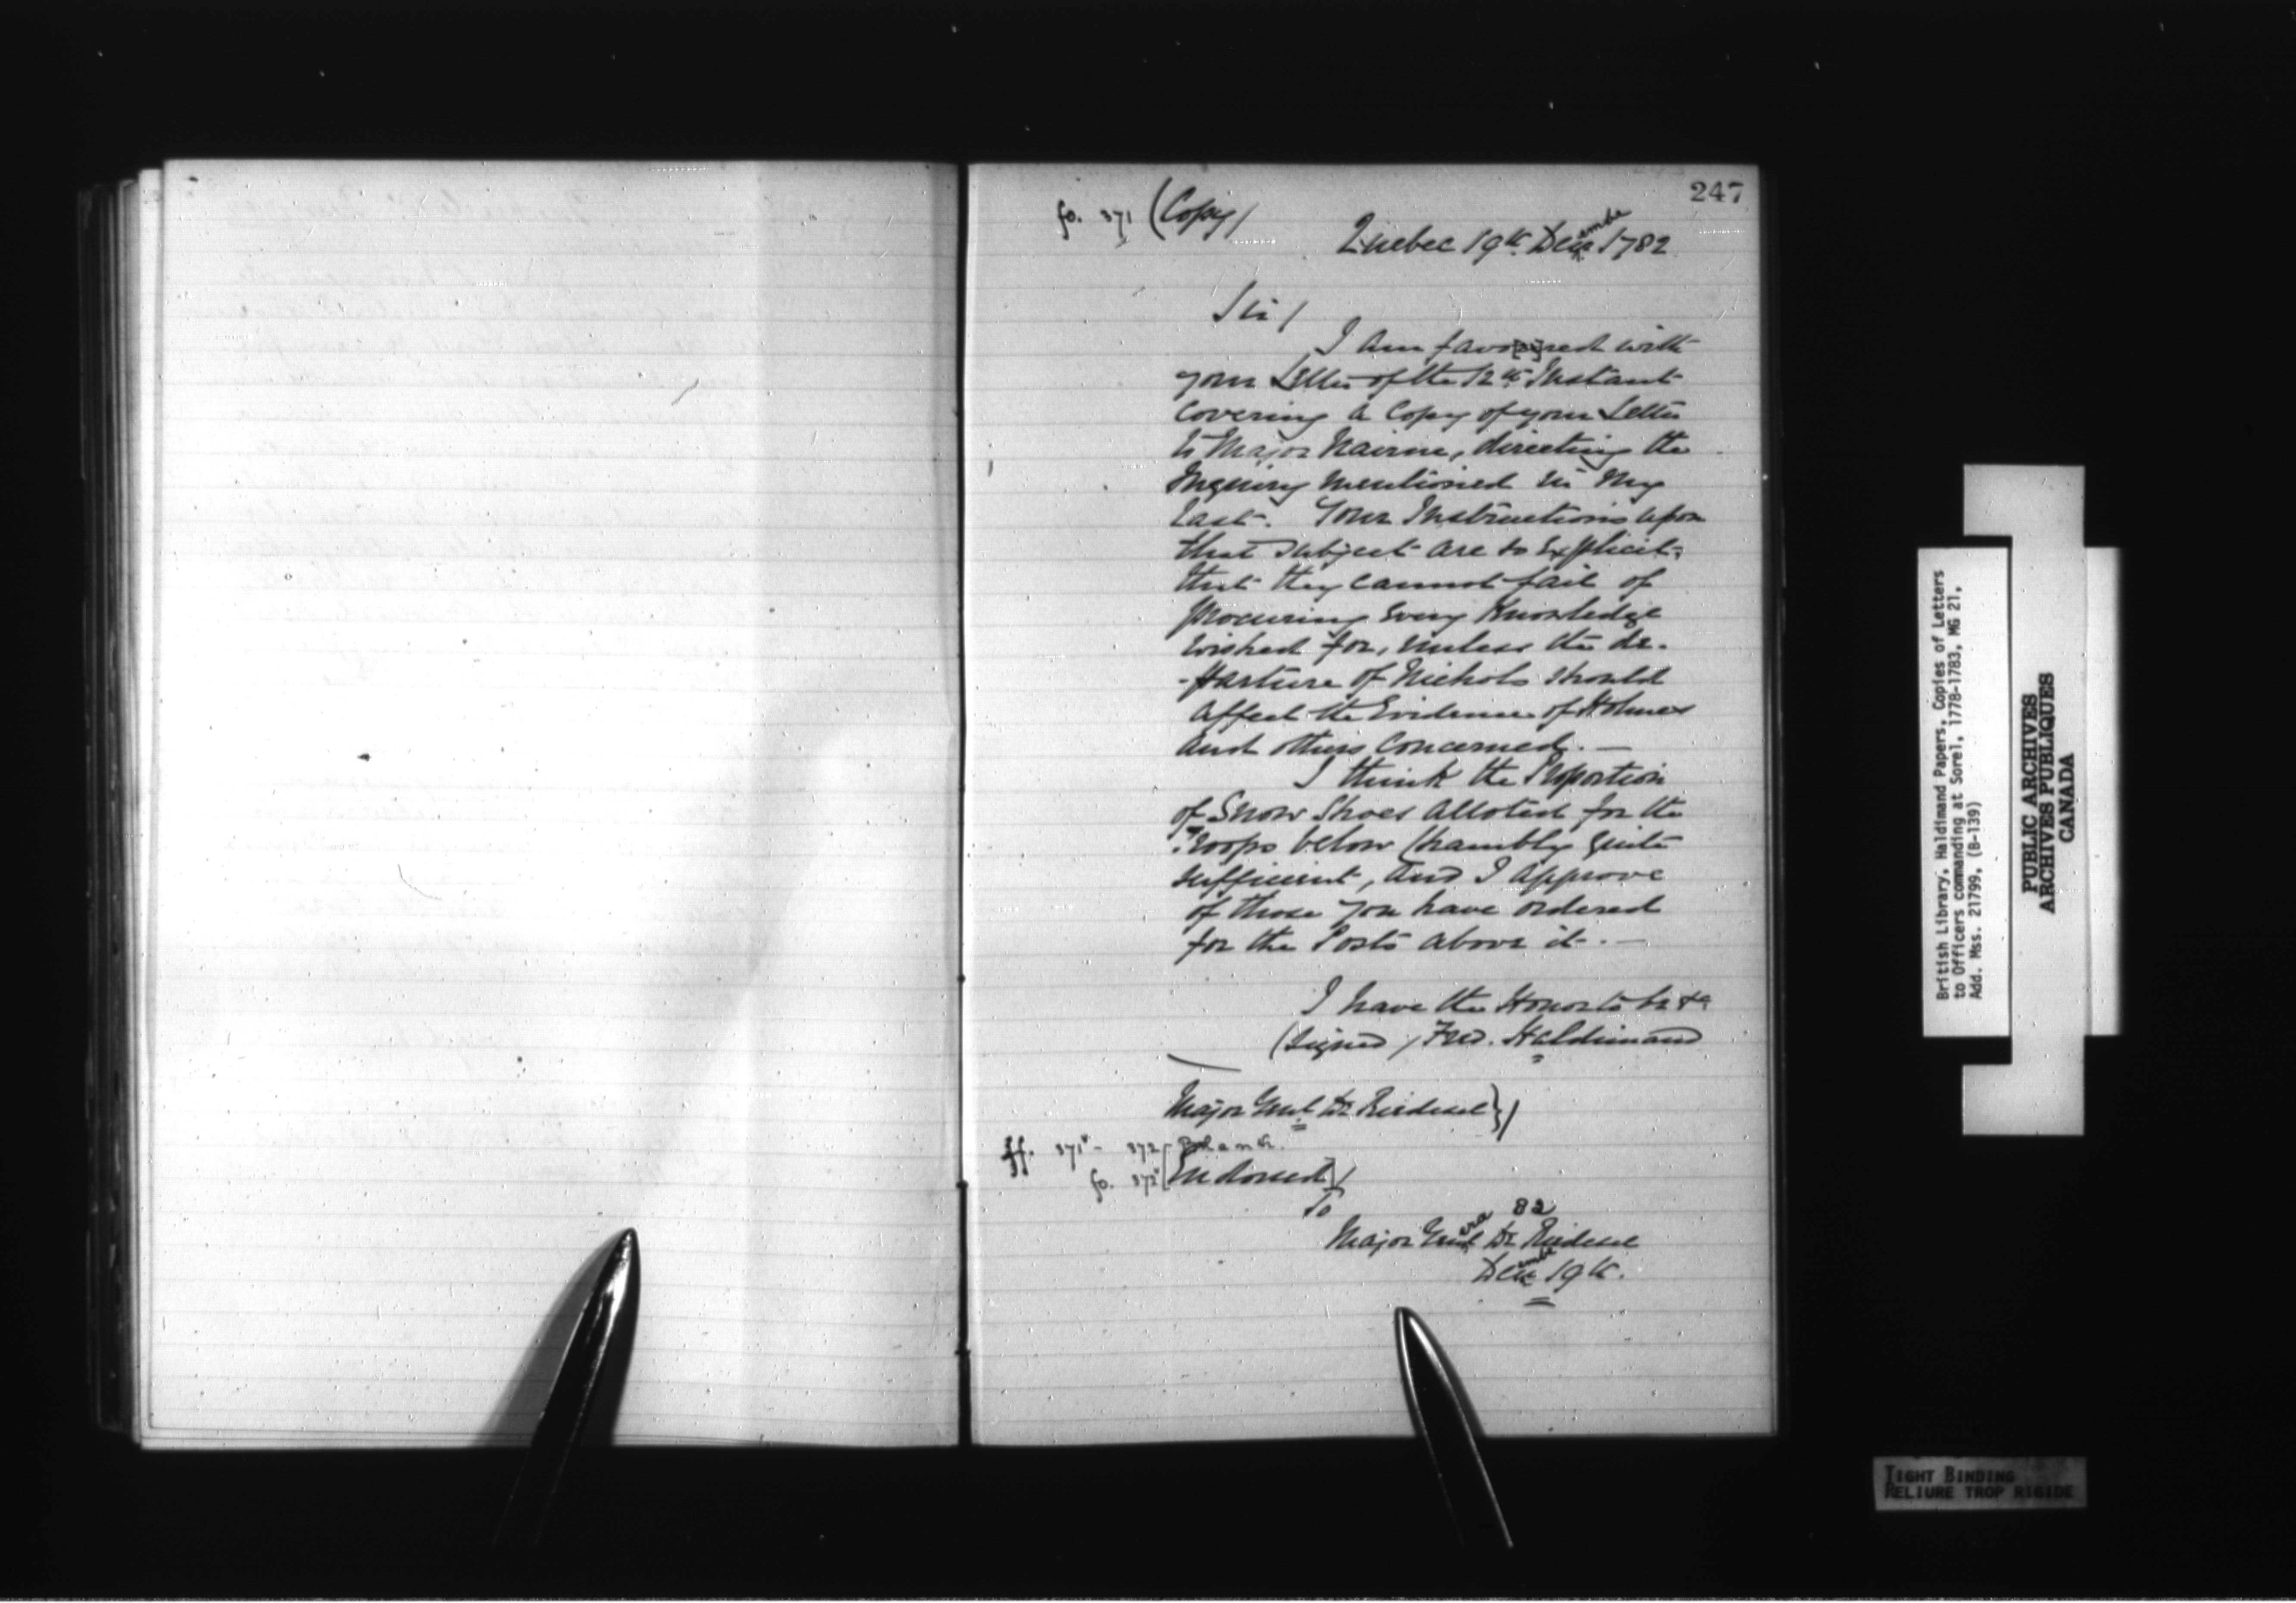 247
fo. 371 (Copy)
Quebec 19th Decembr 1782
Sir/
I am favo[u]red with
your Letter of the 12th Instant
Covering a Copy of your Letter
to Major Nairne, directing the
Inquiry mentioned in my
Last. Your Instructions upon
that subject are so Explicit,
that they cannot fail of
procuring Every Knowledge
wished for, unless the de-
-parture of Nichols should
affect the Evidence of Holmes
and others Concerned. —
I think the Proportion
of Snow Shoes alloted for the
Troops below Chambly quite
sufficient, and I approve
of those you have ordered
for the Posts above it. —
I have the Honor to be &ca
(Signed) Fred. Haldimand
Major Genl De Riedesel}/
ff. 371v - 372 [Blank.
fo. 372v [Endorsed]/
To
82
Major General De Riedesel
Decembr 19th.
British Library, Haldimand Papers, Copies of Letters
to Officers commanding at Sorel, 1778-1783, MG 21,
Add. Mss. 21799, (B-139)
PUBLIC ARCHIVES
ARCHIVES PUBLIQUES
CANADA
TIGHT BINDING
RELIURE TROP RIGIDE